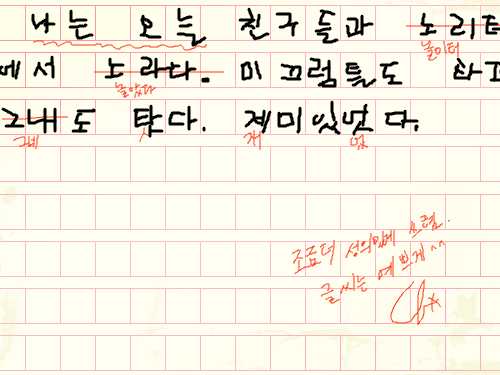 나는 오늘 친구들과 노리터
놀이터
에서 노라다. 미끄럼틀도 타고
놀았다
그내도 탔다. 제미있었다.
그네 재 었
조금더 성의있게 쓰렴.
글씨는 예쁘게^^